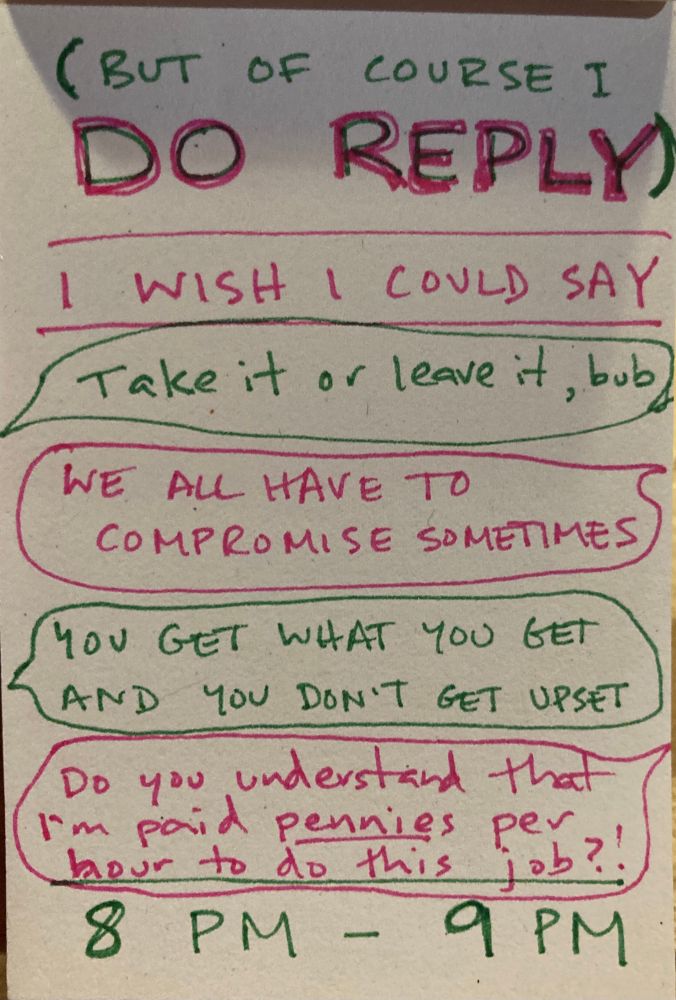 (BUT OF COURSE I
DO REPLY)
I WISH I COULD SAY
Take it or leave it, bub
WE ALL HAVE TO
COMPROMISE SOMETIMES
YOU GET WHAT YOU GET
AND YOU DON'T GET UPSET
Do you understand that
I'm paid pennies per
hour to do this job?!
8 PM - 9 PM